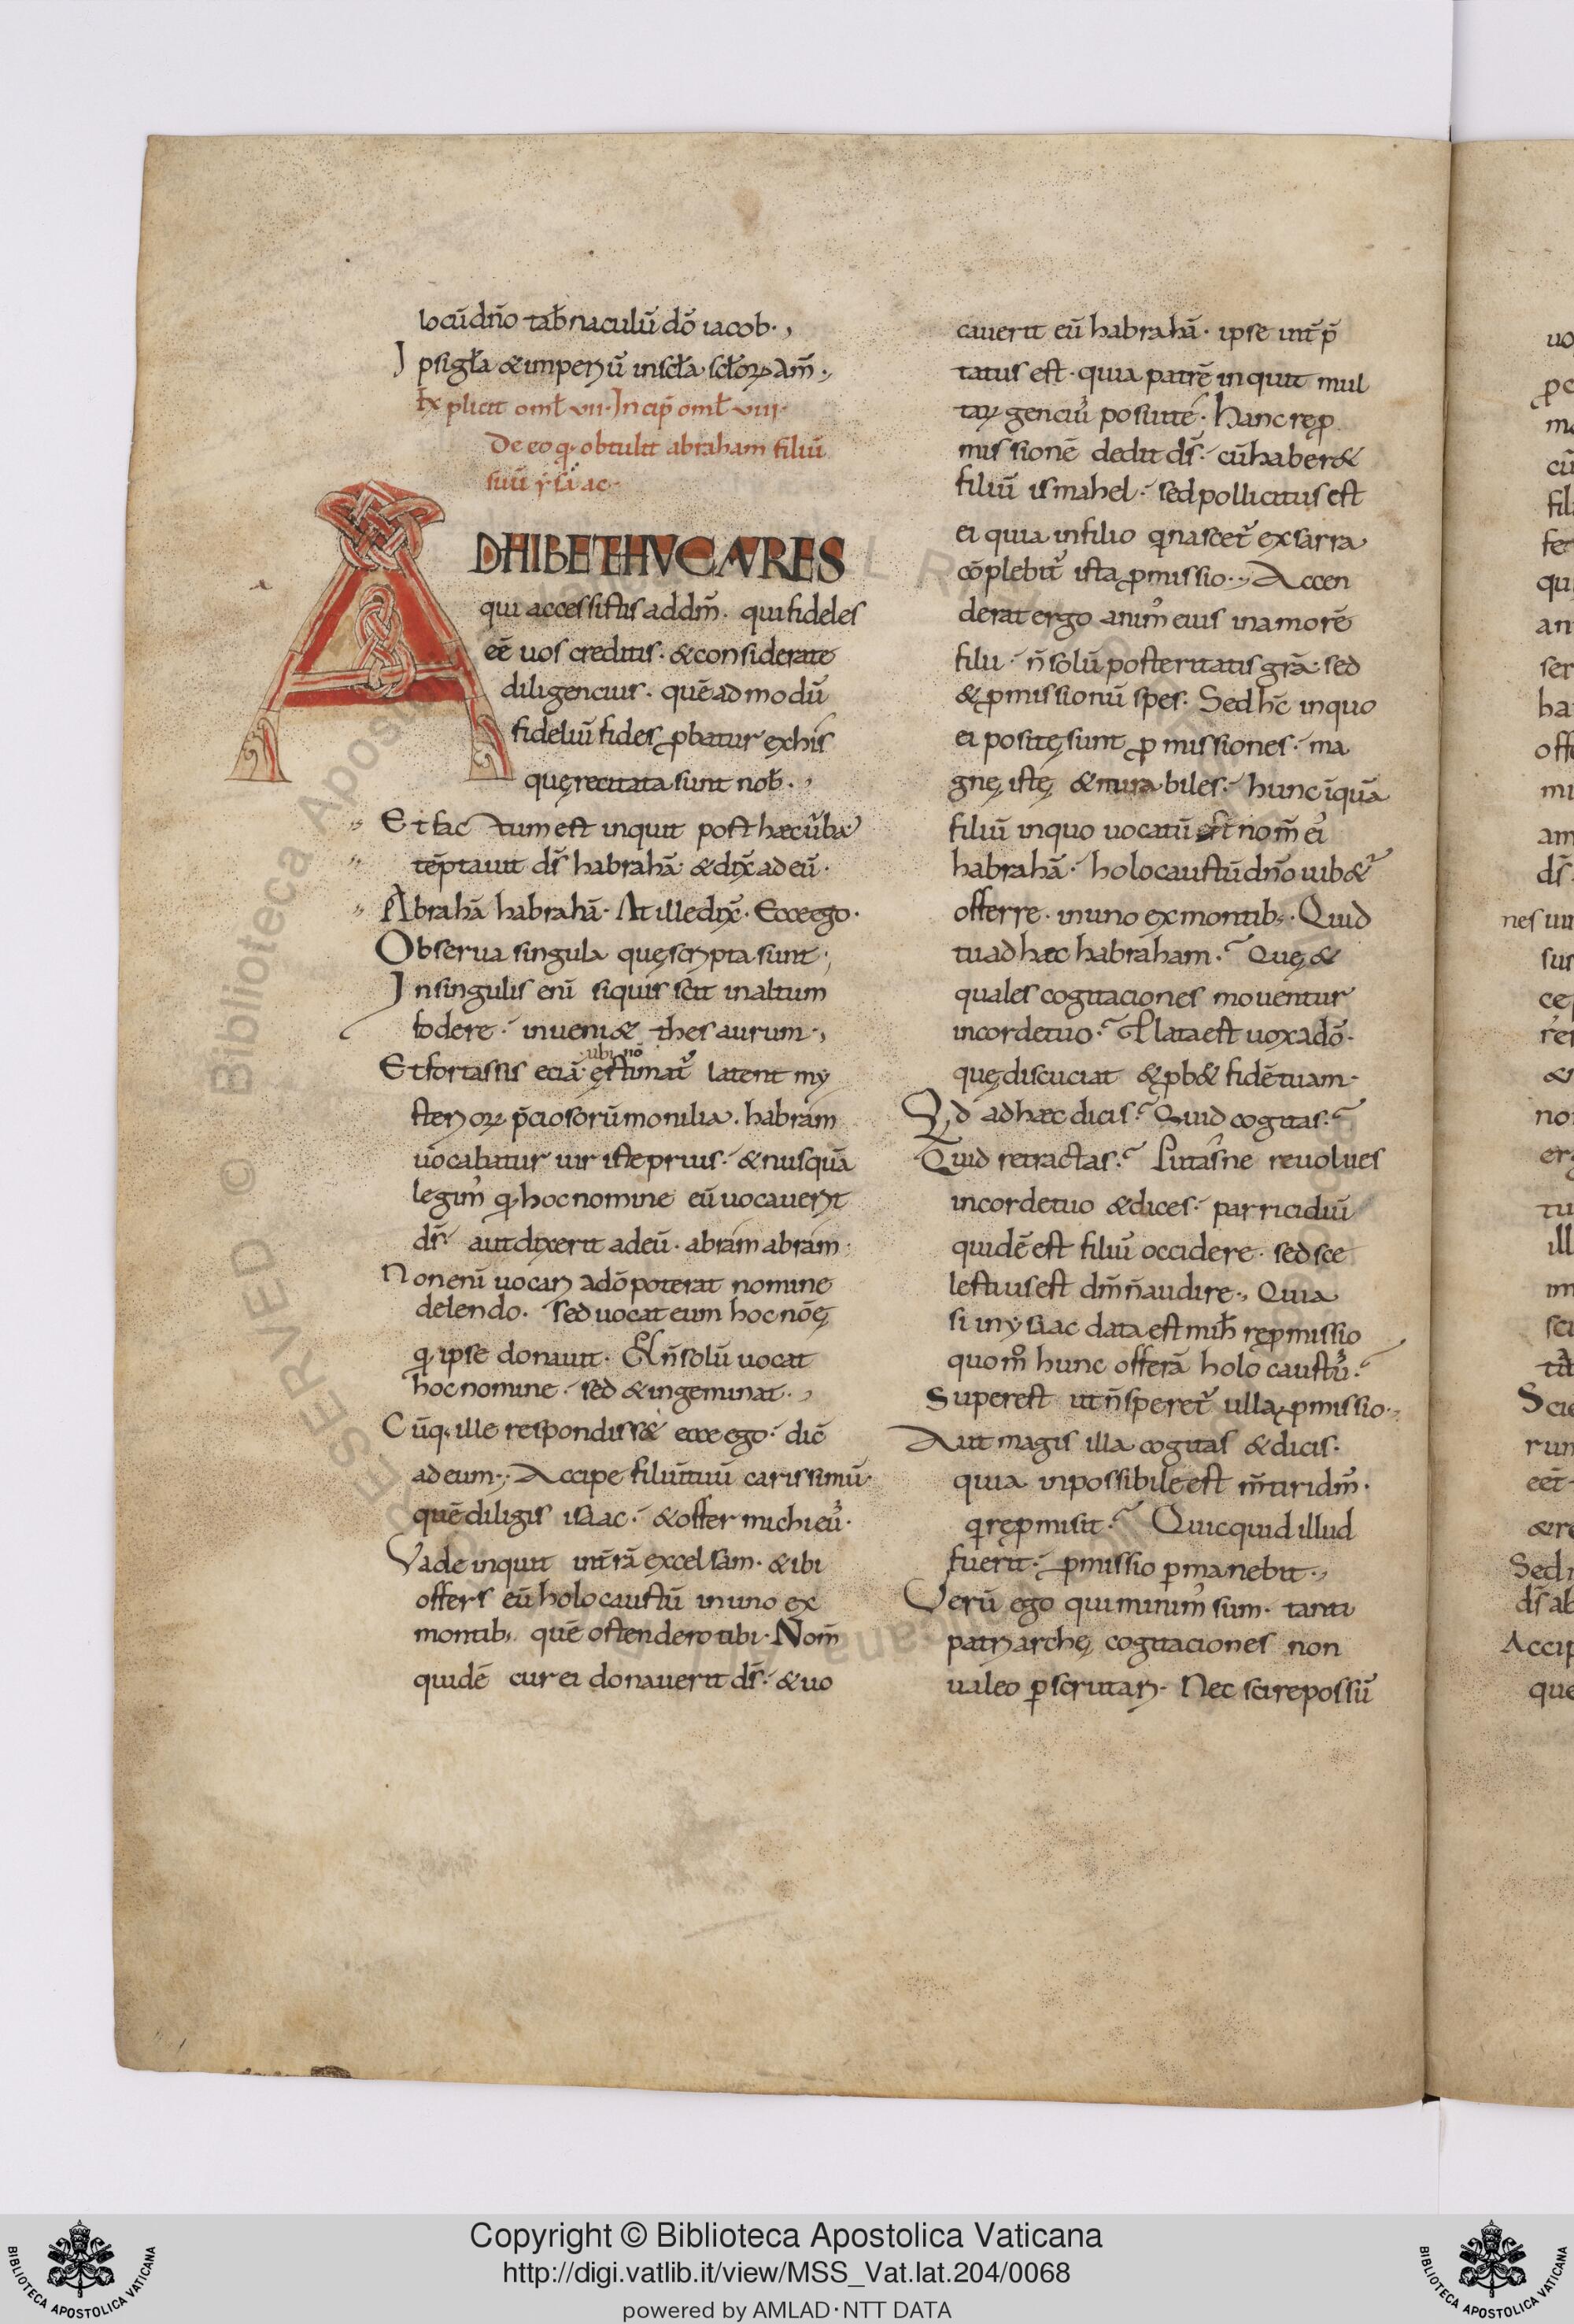 locū dño tab̄naculū dō iacob·,
Ipsi gl̄a & imperiū in scl̄a scl̄oꝝ am̄·,
Explicit oml̄ vii· Incip̄ oml̄ viii·
De eo q· obtulit abraham filiū
suū ẏsaac·
ADHIBETE HVC AVRES
qui accessistis ad dm̄· qui fideles
eē uos creditis· & considerate
diligencius· quē ad modū
fideliū fides ꝓbatur ex his
quę recitata sunt nob̄·,
Et factum est inquit post hæc ūba
tēptauit dī habrahā· & dix̄ ad eū·
Abrahā habrahā· At ille dix̄· Ecce ego·
Obserua singula quę scripta sunt·,
In singulis enī siquis scit in altum
fodere· inueni& thesaurum·,
Et fortassis eciā ubi nō ęstimat̄ latent my
sterioꝝ p̄ciosorū monilia· habram
uocabatur uir iste prius· & nusquā
legim̓ q hoc nomine eū uocauerit
dī· aut dixerit ad eū· abram abram·
Non enī uocari a dō poterat nomine
delendo· sed uocat eum hoc nōę
q ipse donauit· Et n̄ solū uocat
hoc nomine· sed & ingeminat·,
Cūq· ille respondiss& ecce ego· dic̄
ad eum·, Accipe filiū tuū carissimū·
quē diligis isaac· & offer michi eū·
Vade inquit in t̄rā excelsam· & ibi
offers eū holocaustū in uno ex
montib; quē ostendero tibi· Nom̄
quidē cur ei donauerit dī· & uo
cauerit eū habrahā· ipse int̄p̄
tatus est· quia patrē inquit mul
taꝝ genciū posui te· Hanc reꝓ
missionē dedit dī· cū haber&
filiū ismahel· sed pollicitus est
ei quia in filio q nascet̄ ex sarra
cōplebit̄ ista ꝓmissio·, Accen
derat ergo anim̓ eius in amorē
filii· n̄ solū posteritatis grā· sed
& ꝓmissionū spes· Sed hc̄ in quo
ei positę sunt ꝓmissiones· ma
gnę istę & mirabiles· hunc īquā
filiū in quo uocatū est nom̄ ei̓
habrahā· holocaustū dño iub&̄
offerre· in uno ex montib;· Quid
tu ad hæc habraham· Quę &
quales cogitaciones mouentur
in corde tuo· Plata est uox a dō·
quę discuciat & ꝓb& fidē tuam·
Qd ad hæc dicis· Quid cogitas·
Quid retractas· Putasne reuolues
in corde tuo & dices· parricidiū
quidē est filiū occidere· sed sce
lestius est dm̄ n̄ audire·, Quia
si in ẏsaac data est mih̄ reꝓmissio
quom̊ hunc offerā holocaustū·
Superest ut n̄ speret̄ ulla ꝓmissio·,
Aut magis illa cogitas & dicis·
quia inpossibile est m̄tiri dm̄·
q reꝓmisit· Quicquid illud
fuerit· ꝓmissio ꝑmanebit·,
Verū ego qui minim̓ sum· tanti
patriarchę cogitaciones non
ualeo ꝑscrutari· Nec scire possū
Copyright © Biblioteca Apostolica Vaticana
http://digi.vatlib.it/view/MSS_Vat.lat.204/0068
powered by AMLAD·NTT DATA
BIBLIOTECA APOSTOLICA VATICANA
BIBLIOTECA APOSTOLICA VATICANA